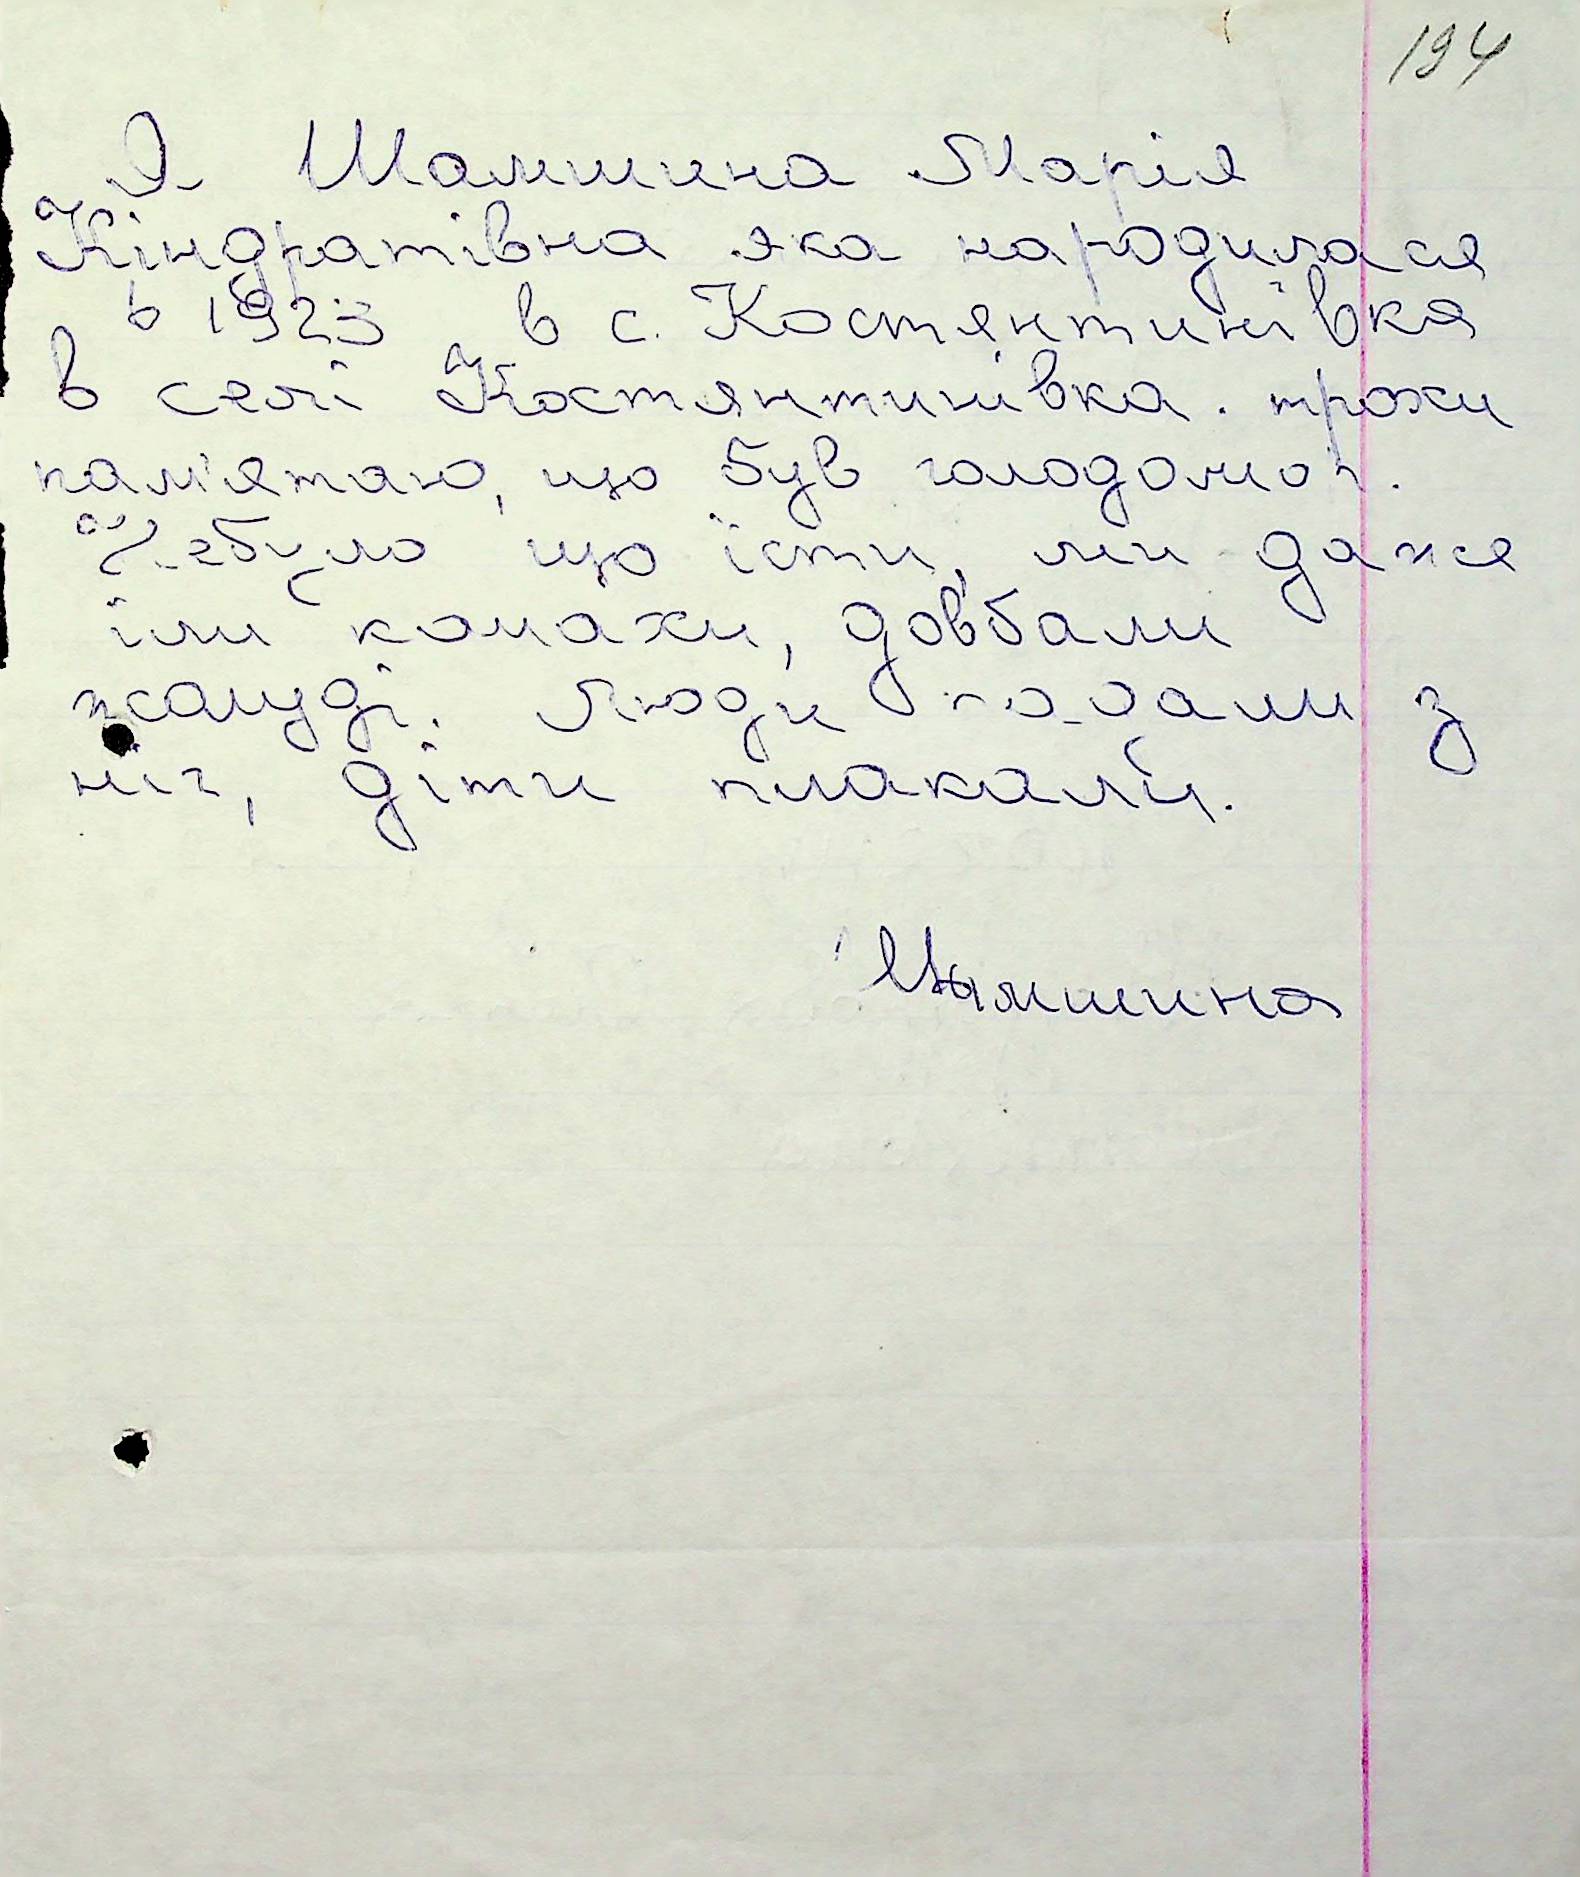 194
Я Шамшина Марія
Кіндратівна яка народилася
в 1923 в с. Костянтинівка
в селі Костянтинівка. трохи
пам'ятаю, що був голодомор.
Небуло що їсти, ми даже
їли комахи, довбали
жалуді. Люди падали з
ніг, діти плакали.
Шамшина